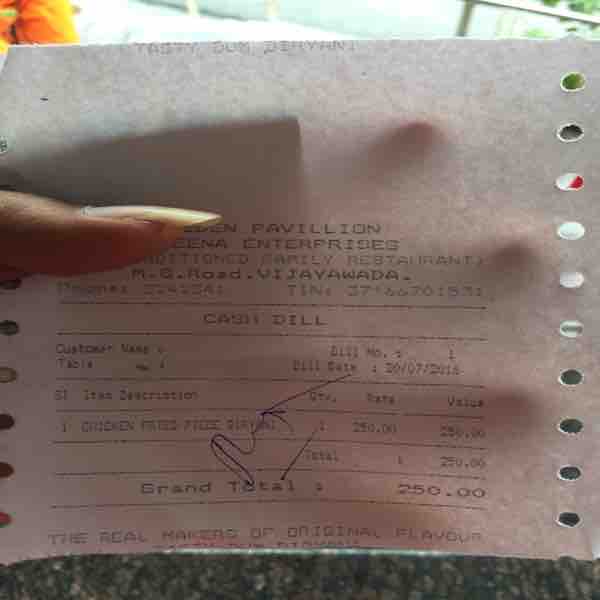 TASTY DUM BIRYANI
EDEN PAVILLION
EENA ENTERPRISES
FAMILY RESTAURANT)
M.G.Road.VIJAYAWADA.
Phone:
TIN:
CASH BILL
Customer Name :
Bill No. : 1
Table No :
Bill Date : 20/07/2016
Sl Item Description Qty. Rate Value
1 CHICKEN FRIED PIECE BIRYANI 1 250.00 250.00
Total : 250.00
Grand Total : 250.00
THE REAL MAKERS OF ORIGINAL FLAVOUR
TASTY DUM BIRYANI